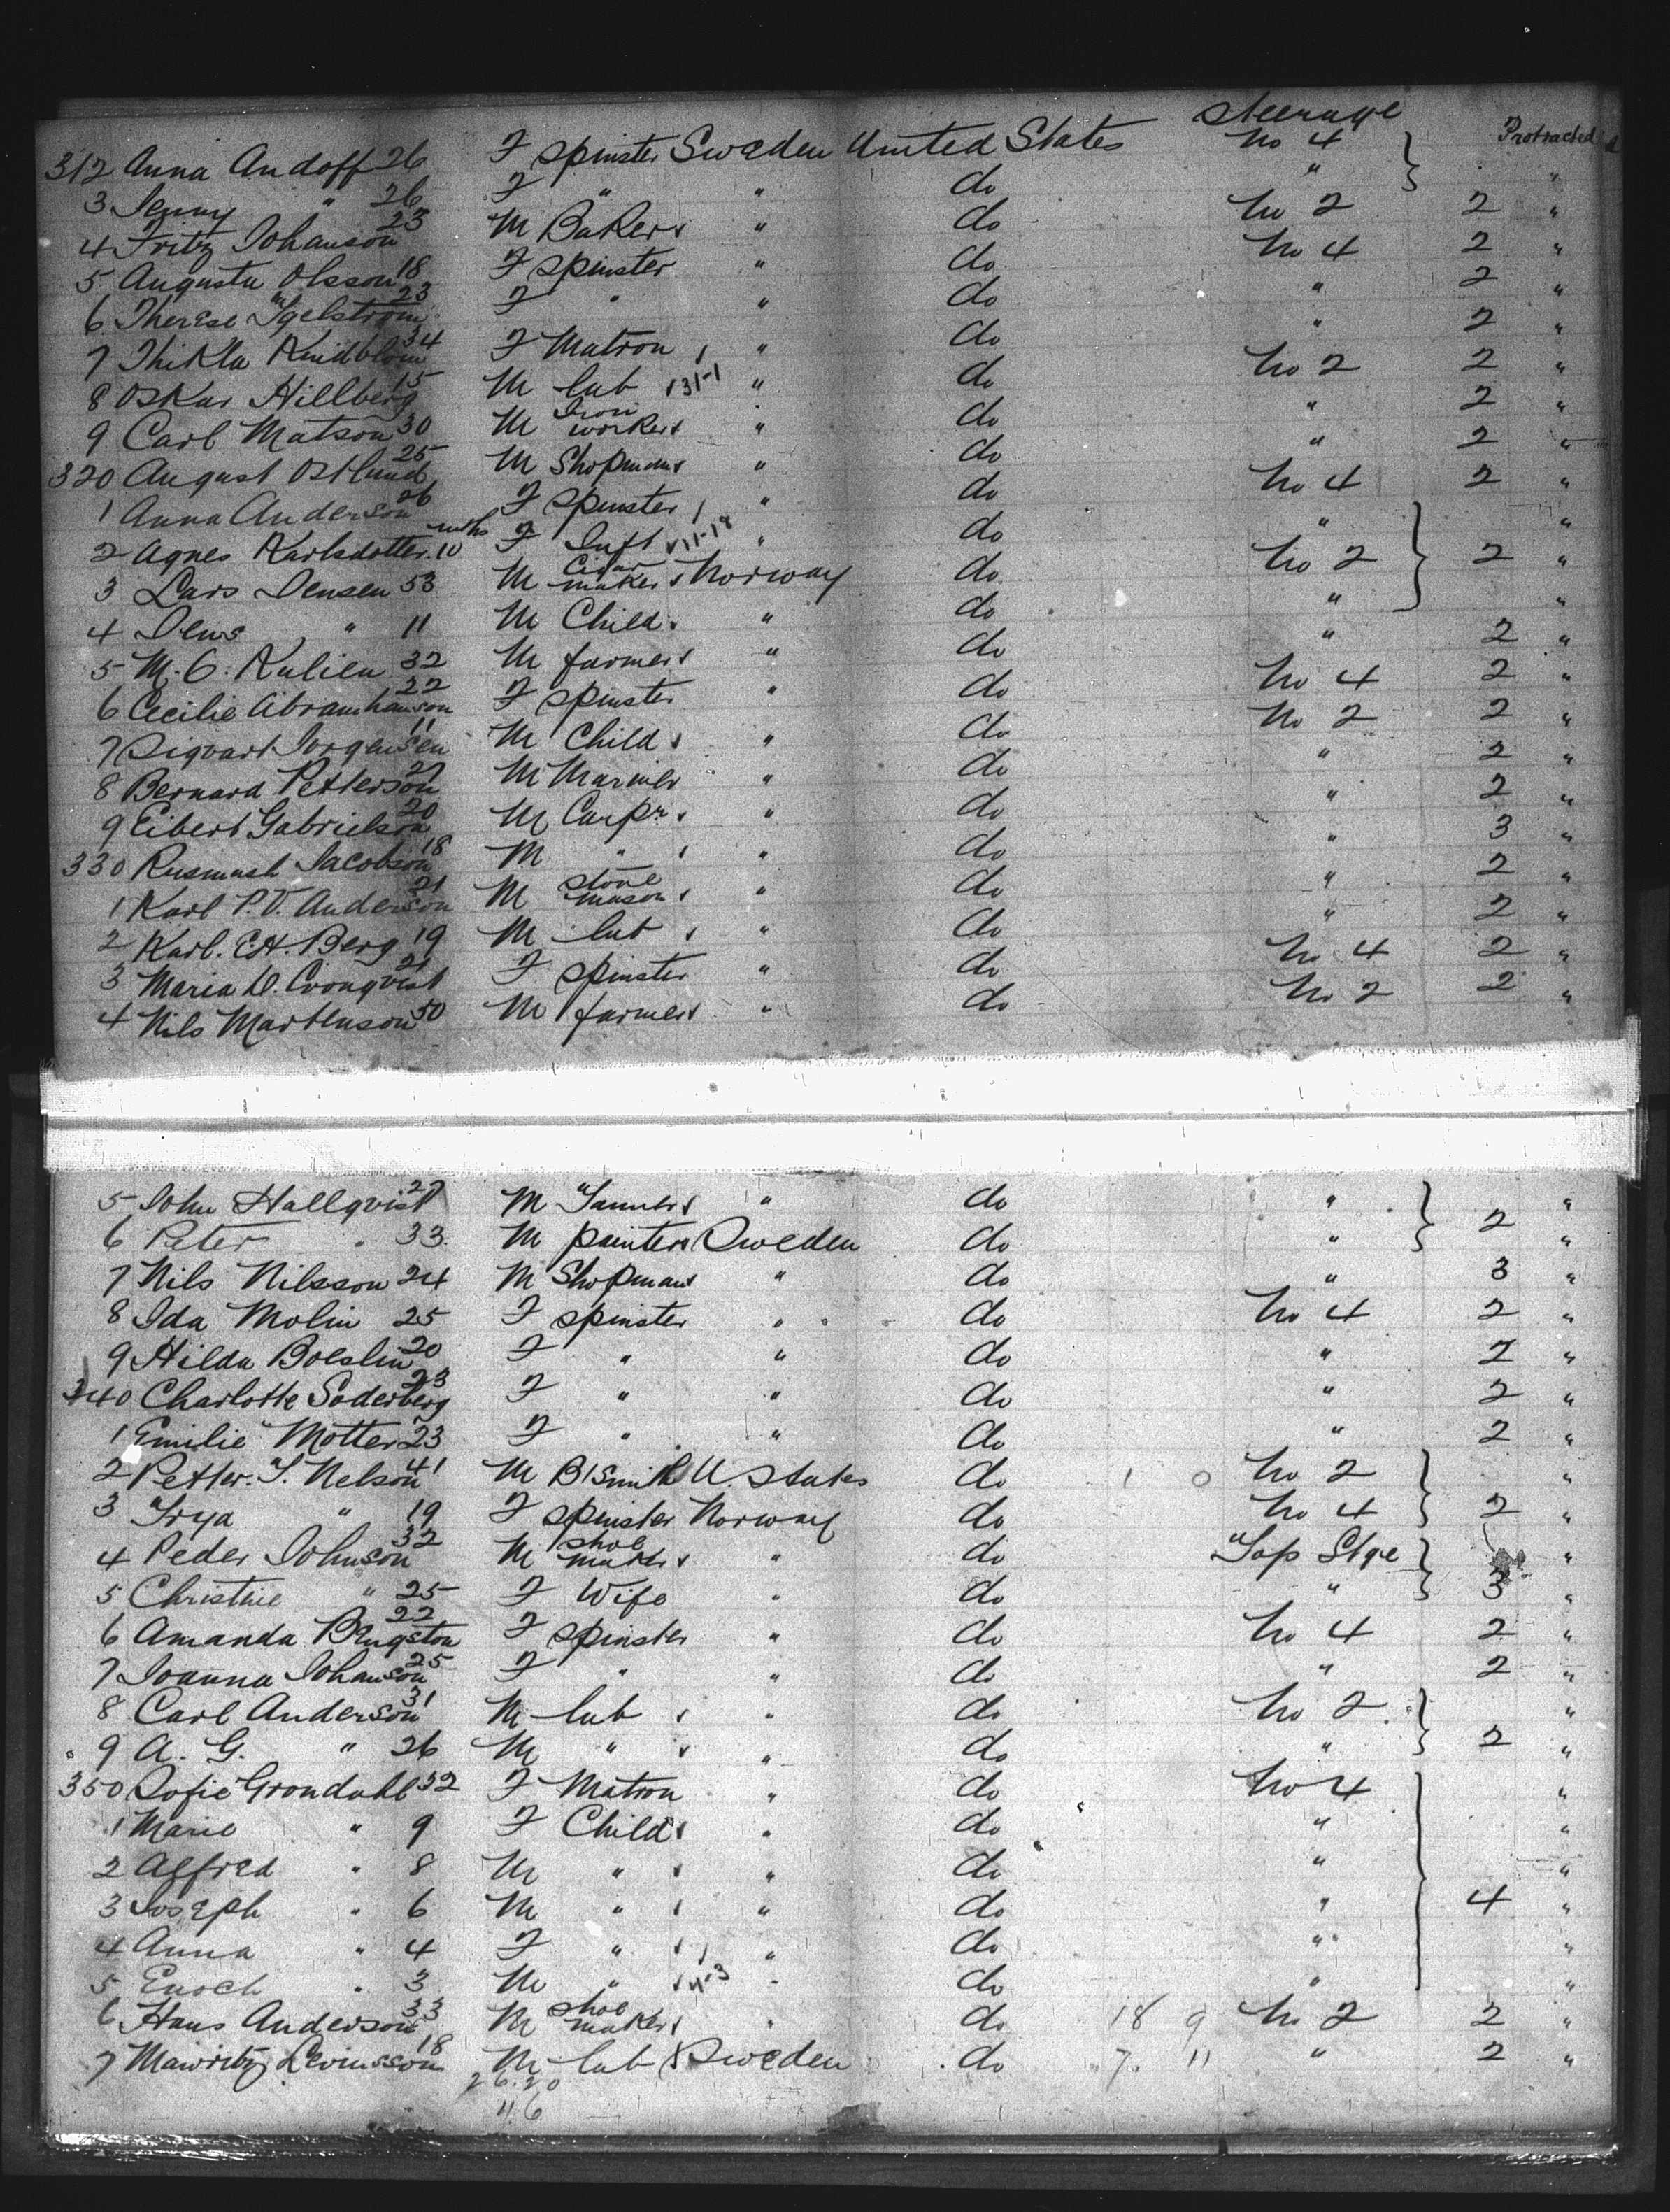 Steerage
312 Anna Andoff 26 F Spinster Sweden United States No 4 Protracted
3 Jenny " 26 F " " do " "
4 Fritz Johanson 23 M Baker " do No 2 2 "
5 Augusta Olsson 18 F Spinster " do No 4 2 "
6 Therese Igelstrom 23 F " " do " 2 "
7 Thikla Kindblom 34 F Matron " do " 2 "
8 Oskar Hillberg 15 M lab " do No 2 2 "
9 Carl Matson 30 M Iron worker " do " 2 "
320 August Ostlund 25 M Shopman " do " 2 "
1 Anna Anderson 26 F Spinster " do No 4 2 "
2 Agnes Karlsdotter 10 mths F Inft " do " "
3 Lars Jensen 53 M Cigar maker Norway do No 2 2 "
4 Jens " 11 M Child " do " "
5 M. O. Kulien 32 M farmer " do " 2 "
6 Cecilie Abramhanson 22 F Spinster " do No 4 2 "
7 Sigvart Jorgensen 11 M Child " do No 2 2 "
8 Bernard Petterson 27 M Mariner " do " 2 "
9 Eibert Gabrielson 20 M Carpr " do " 2 "
330 Rusmush Jacobson 18 M " " do " 3 "
1 Karl P. V. Anderson 21 M Stone mason " do " 2 "
2 Karl. E. H. Berg 19 M lab " do " 2 "
3 Maria D. Cronqvist 21 F Spinster " do No 4 2 "
4 Nils Martenson 50 M farmer " do No 2 2 "
5 John Hallqvist 27 M Tanner " do " "
6 Peter " 33 M painter Sweden do " 2 "
7 Nils Nilsson 24 M Shopman " do " 3 "
8 Ida Molin 25 F Spinster " do No 4 2 "
9 Hilda Boeslin 20 F " " do " 2 "
340 Charlotte Soderberg 23 F " " do " 2 "
1 Emilie Motter 23 F " " do " 2 "
2 Petter. T. Nelson 41 M Bl Smith U. States do 1 0 No 2 "
3 Trya " 19 F Spinster Norway do No 4 2 "
4 Peder Johnson 32 M Shoe maker " do Top Stge "
5 Christine " 25 F Wife " do " 3 "
6 Amanda Bengston 22 F Spinster " do No 4 2 "
7 Joanna Johanson 25 F " " do " 2 "
8 Carl Anderson 31 M lab " do No 2 "
9 A. G. " 26 M " " do " 2 "
350 Sofie Grondahl 32 F Matron " do No 4 "
1 Marie " 9 F Child " do " "
2 Alfred " 8 M " " do " "
3 Joseph " 6 M " " do " 4 "
4 Anna " 4 F " " do " "
5 Enoch " 3 M " " do " "
6 Hans Anderson 33 M Shoe maker " do 18 9 No 2 2 "
7 Mawritz Levinsson 18 M lab Sweden do 7 11 " 2 "
26.20
11.6